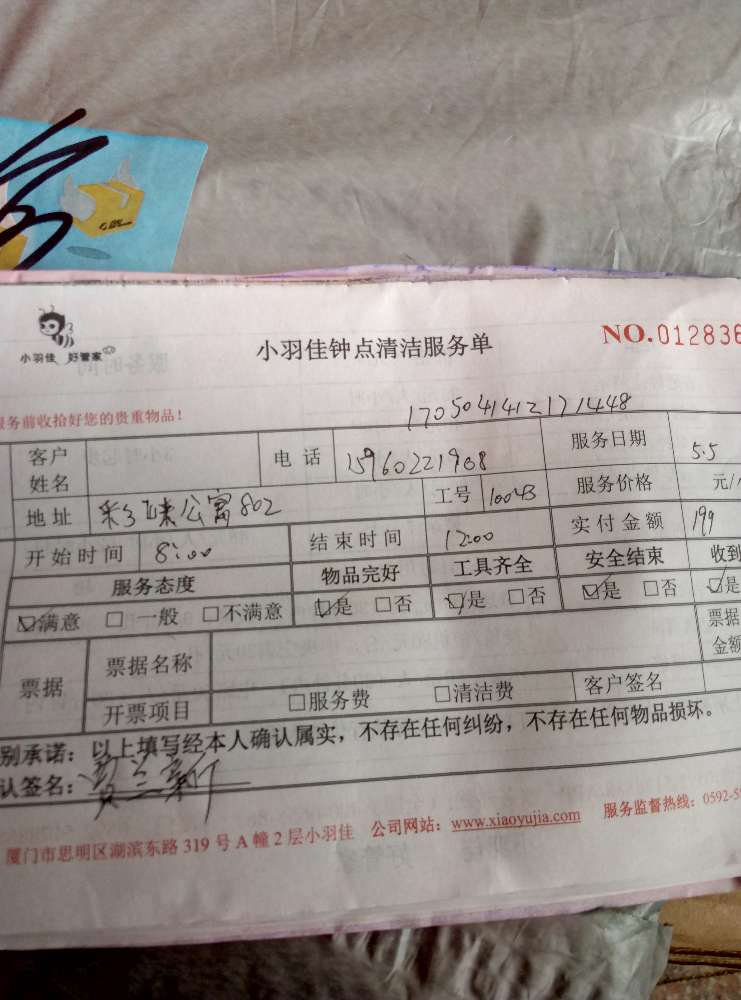 小羽佳 好管家
小羽佳钟点清洁服务单
NO.012836
服务前收拾好您的贵重物品!
1705041412171448
客户姓名 电话 15960221908 服务日期 5.5
地址 公寓802 工号 10043 服务价格 元/
开始时间 8:00 结束时间 12:00 实付金额 199
服务态度 物品完好 工具齐全 安全结束 收到
☑满意 □一般 □不满意 ☑是 □否 ☑是 □否 ☑是 □否 ☑是
票据 票据名称 票据金额
开票项目 □服务费 □清洁费 客户签名
别承诺:以上填写经本人确认属实,不存在任何纠纷,不存在任何物品损坏。
认签名:
厦门市思明区湖滨东路 319 号 A 幢 2 层小羽佳 公司网站:www.xiaoyujia.com 服务监督热线:0592-5